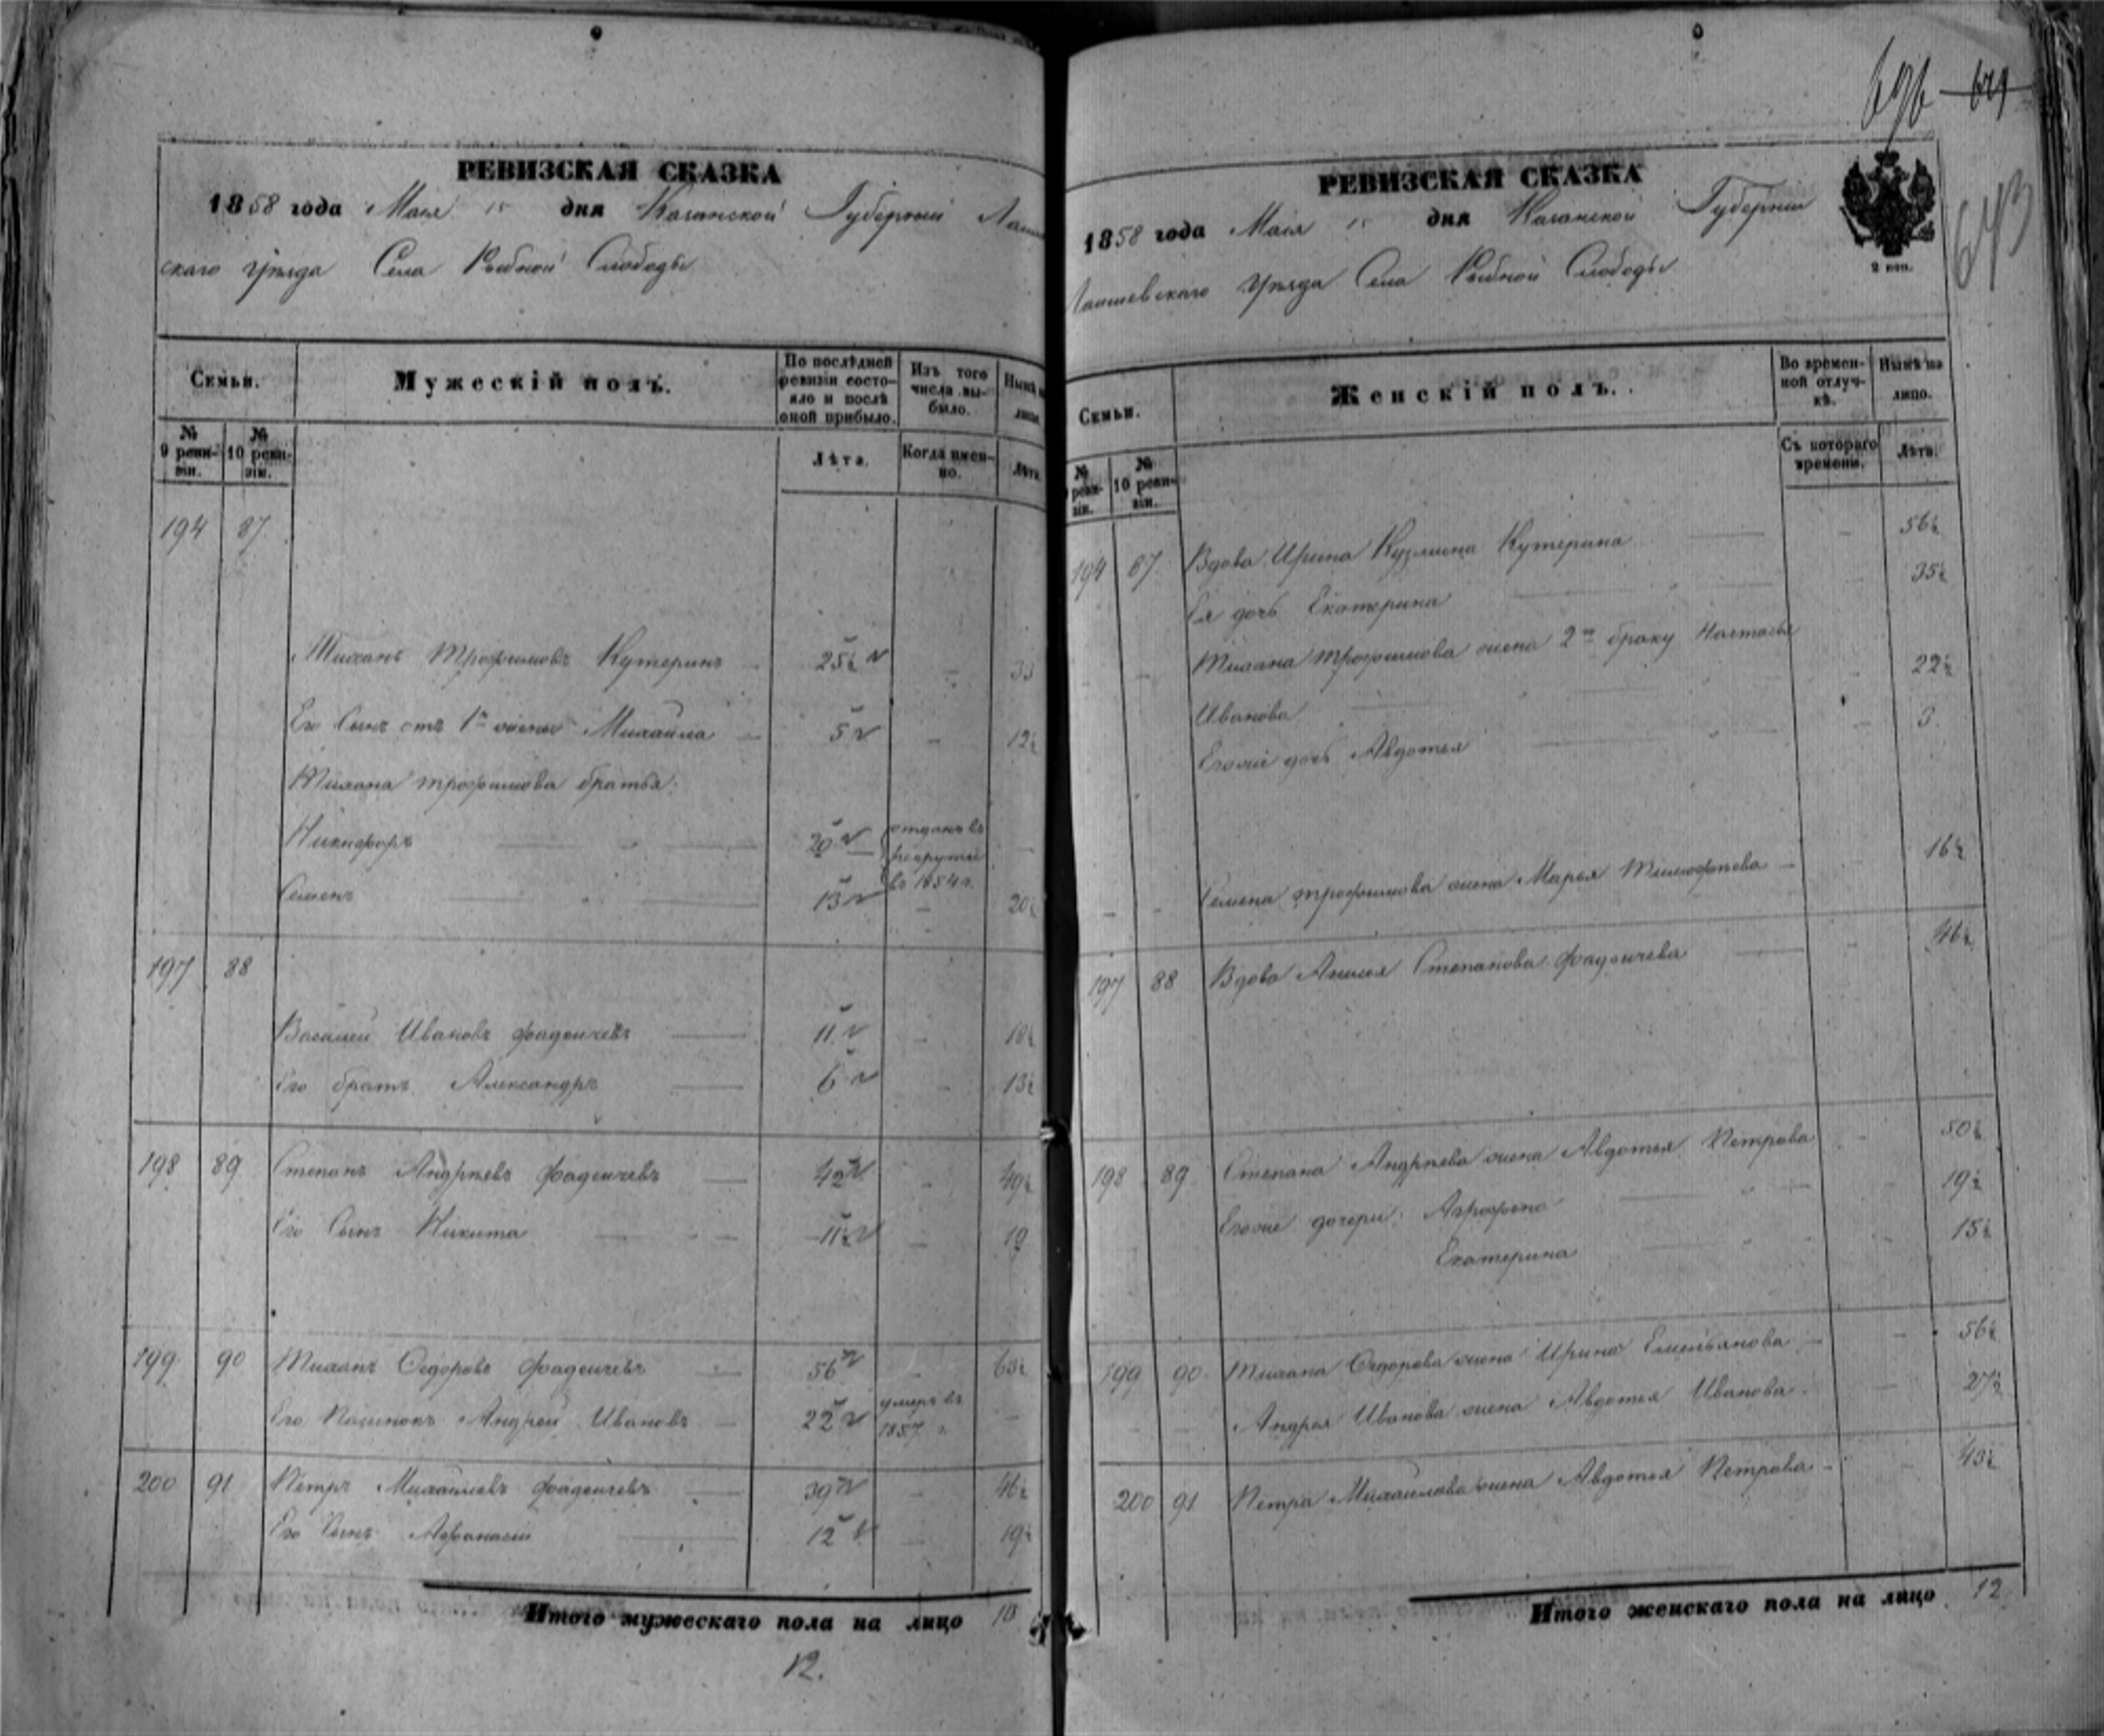 696 641
643
РЕВИЗСКАЯ СКАЗКА
1858 года Мая 15 дня Казанской Губерніи Лаи
скаго Уѣзда Села Рыбной Слободы
Семьи.
Мужескій полъ.
По послѣдней ревизіи состояло и послѣ оной прибыло.
Изъ того числа выбыло.
Нынѣ на лицо.
№ 9 ревизіи.
№ 10 ревизіи.
Лѣта.
Когда именно.
Лѣта.
194 87
Тиханъ Трофимовъ Кутеринъ — 25½ — 33
Его Сынъ отъ 1й жены Михайла — 5 — 12½
Тихана трофимова братья:
Никифоръ 20 отданъ въ рекруты въ 1854 г. —
Семенъ 13 — 20½
197 88
Василей Ивановъ фадеичевъ 11 — 18½
Его братъ Александръ 6 — 13½
198 89 Степанъ Андрѣевъ фадеичевъ 42 — 49½
Его Сынъ Никита 11½ — 19
199 90 Тиханъ Ѳедоровъ фадеичевъ 56 — 63½
Его Пасынокъ Андрей Ивановъ — 22 умеръ въ 1857 г. —
200 91 Петръ Михайловъ фадеичевъ 39 — 46½
Его Сынъ Афанасій 12 — 19½
Итого мужескаго пола на лицо 10
12.
РЕВИЗСКАЯ СКАЗКА
1858 года Мая 15 дня Казанской Губерніи
Лаишевскаго Уѣзда Села Рыбной Слободы
2 коп.
Семьи.
Женскій полъ.
Во временной отлучкѣ.
Нынѣ на лицо.
№ ревизіи.
№ 10 ревизіи.
Съ котораго времени.
Лѣта.
194 87 Вдова Ирина Кузмина Кутерина — 56½
Ея дочь Екатерина 35½
Тихана трофимова жена 2го браку Настасья
Иванова 22½
Егоже дочь Авдотья — 3.
Семена трофимова жена Марья Тимофѣева — 16½
197 88 Вдова Анисья Степанова фадеичева — 46½
198 89 Степана Андрѣева жена Авдотья Петрова — 50½
Егоже дочери: Агрофена 19½
Екатерина 15½
199 90 Тихана Ѳедорова жена Ирина Емельянова — 56½
Андрея Иванова жена Авдотья Иванова. — 27½
200 91 Петра Михайлова жена Авдотья Петрова — 43½
Итого женскаго пола на лицо 12